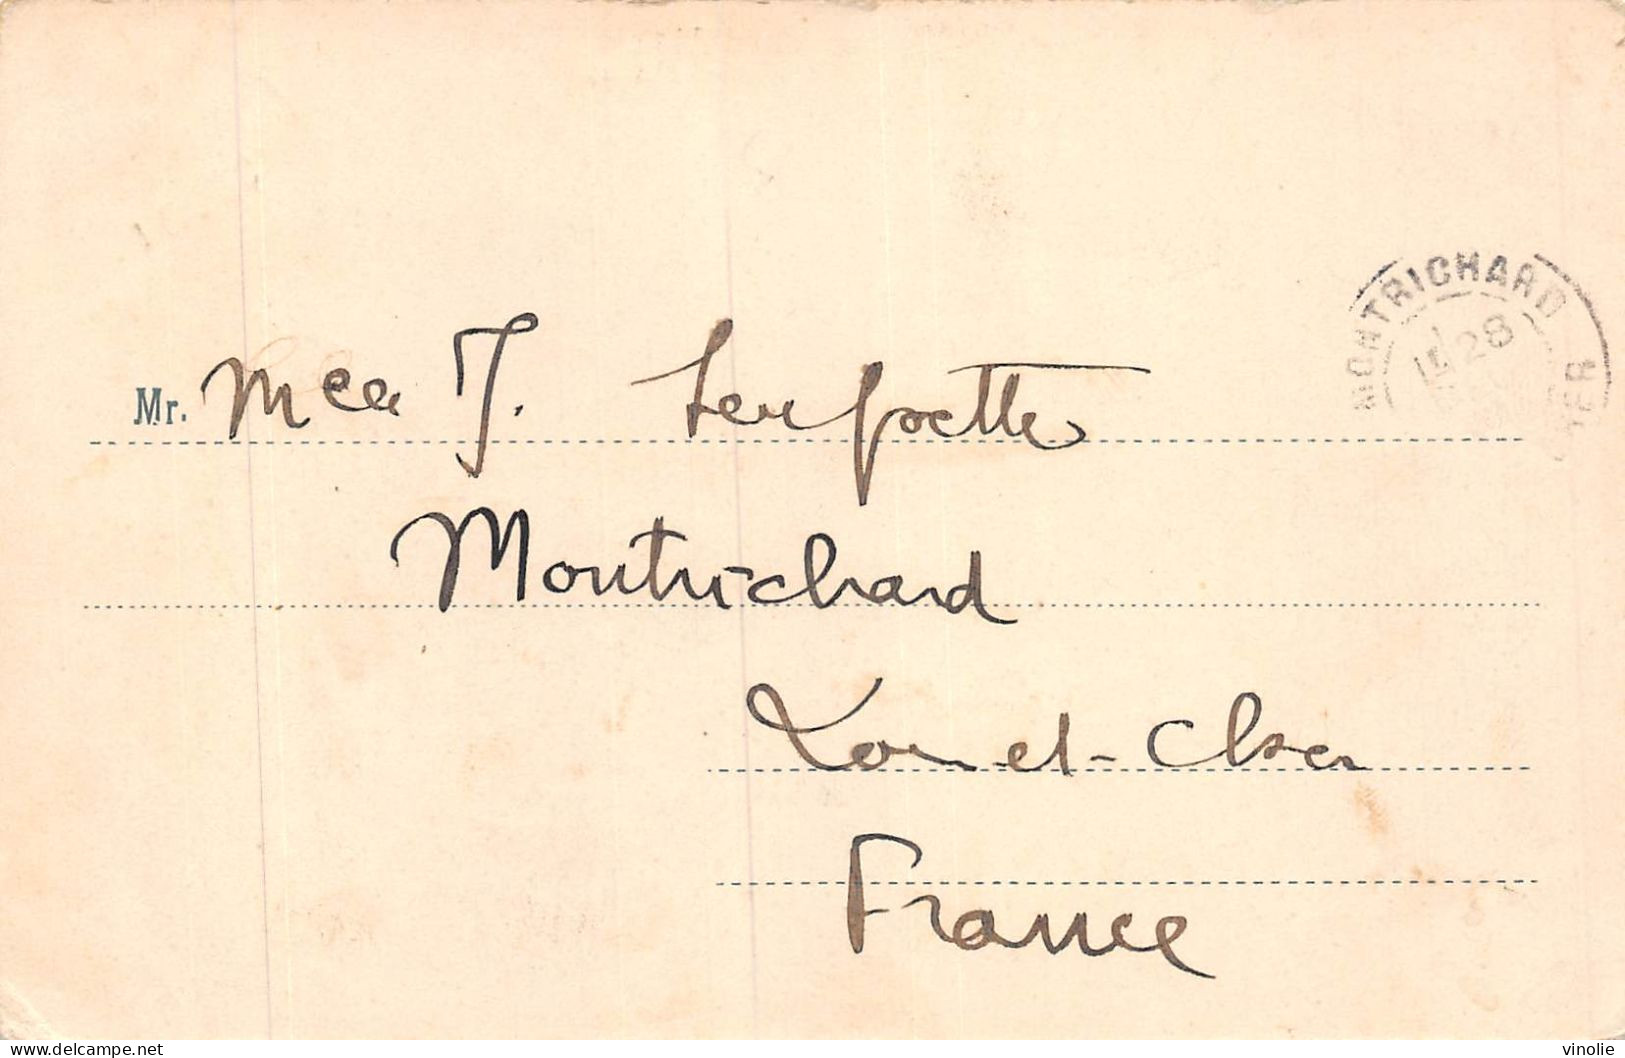 MONTRICHARD
28
CHER
Mr. Mlle J. Serpette
Montrichard
Loir-et-Cher
France
delcampe.net
vinolie